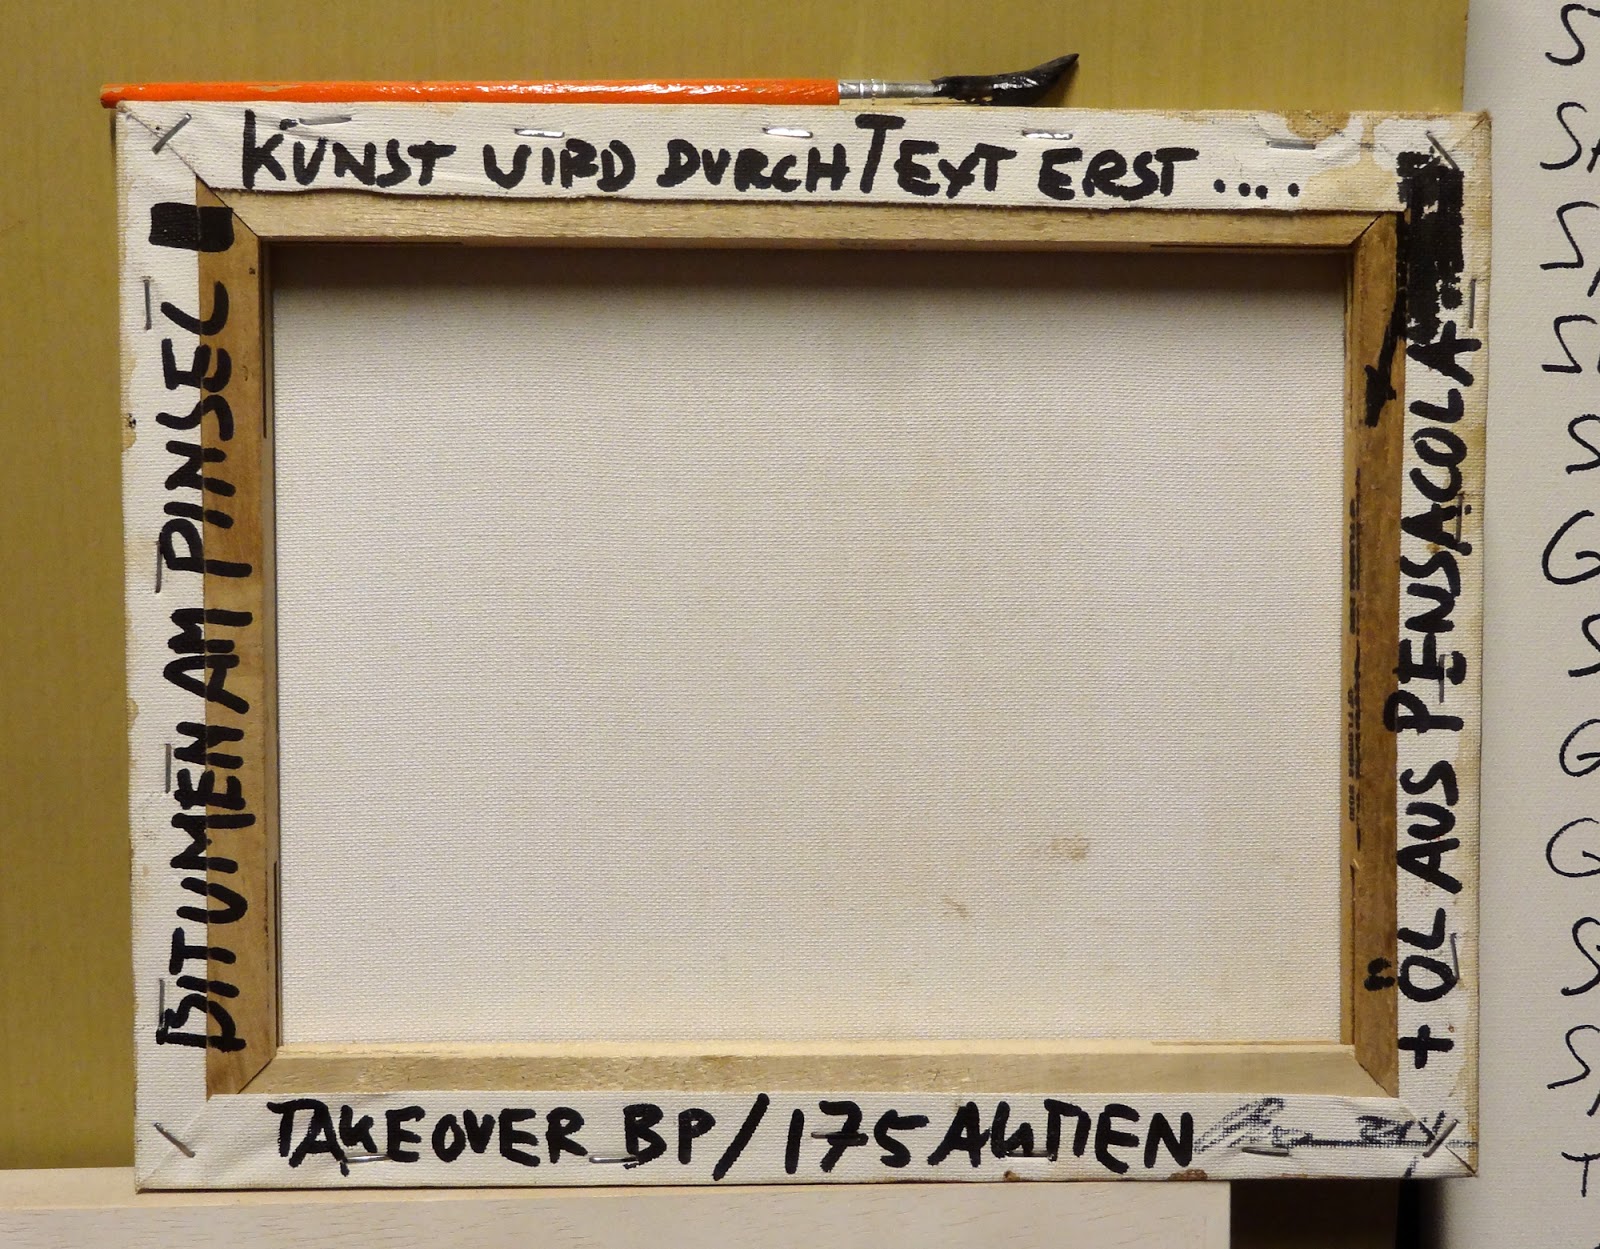 KUNST WIRD DURCH TEXT ERST ....
BITUMEN AM PINSEL
+ ÖL AUS PENSACOLA.
TAKEOVER BP/175 AKTIEN